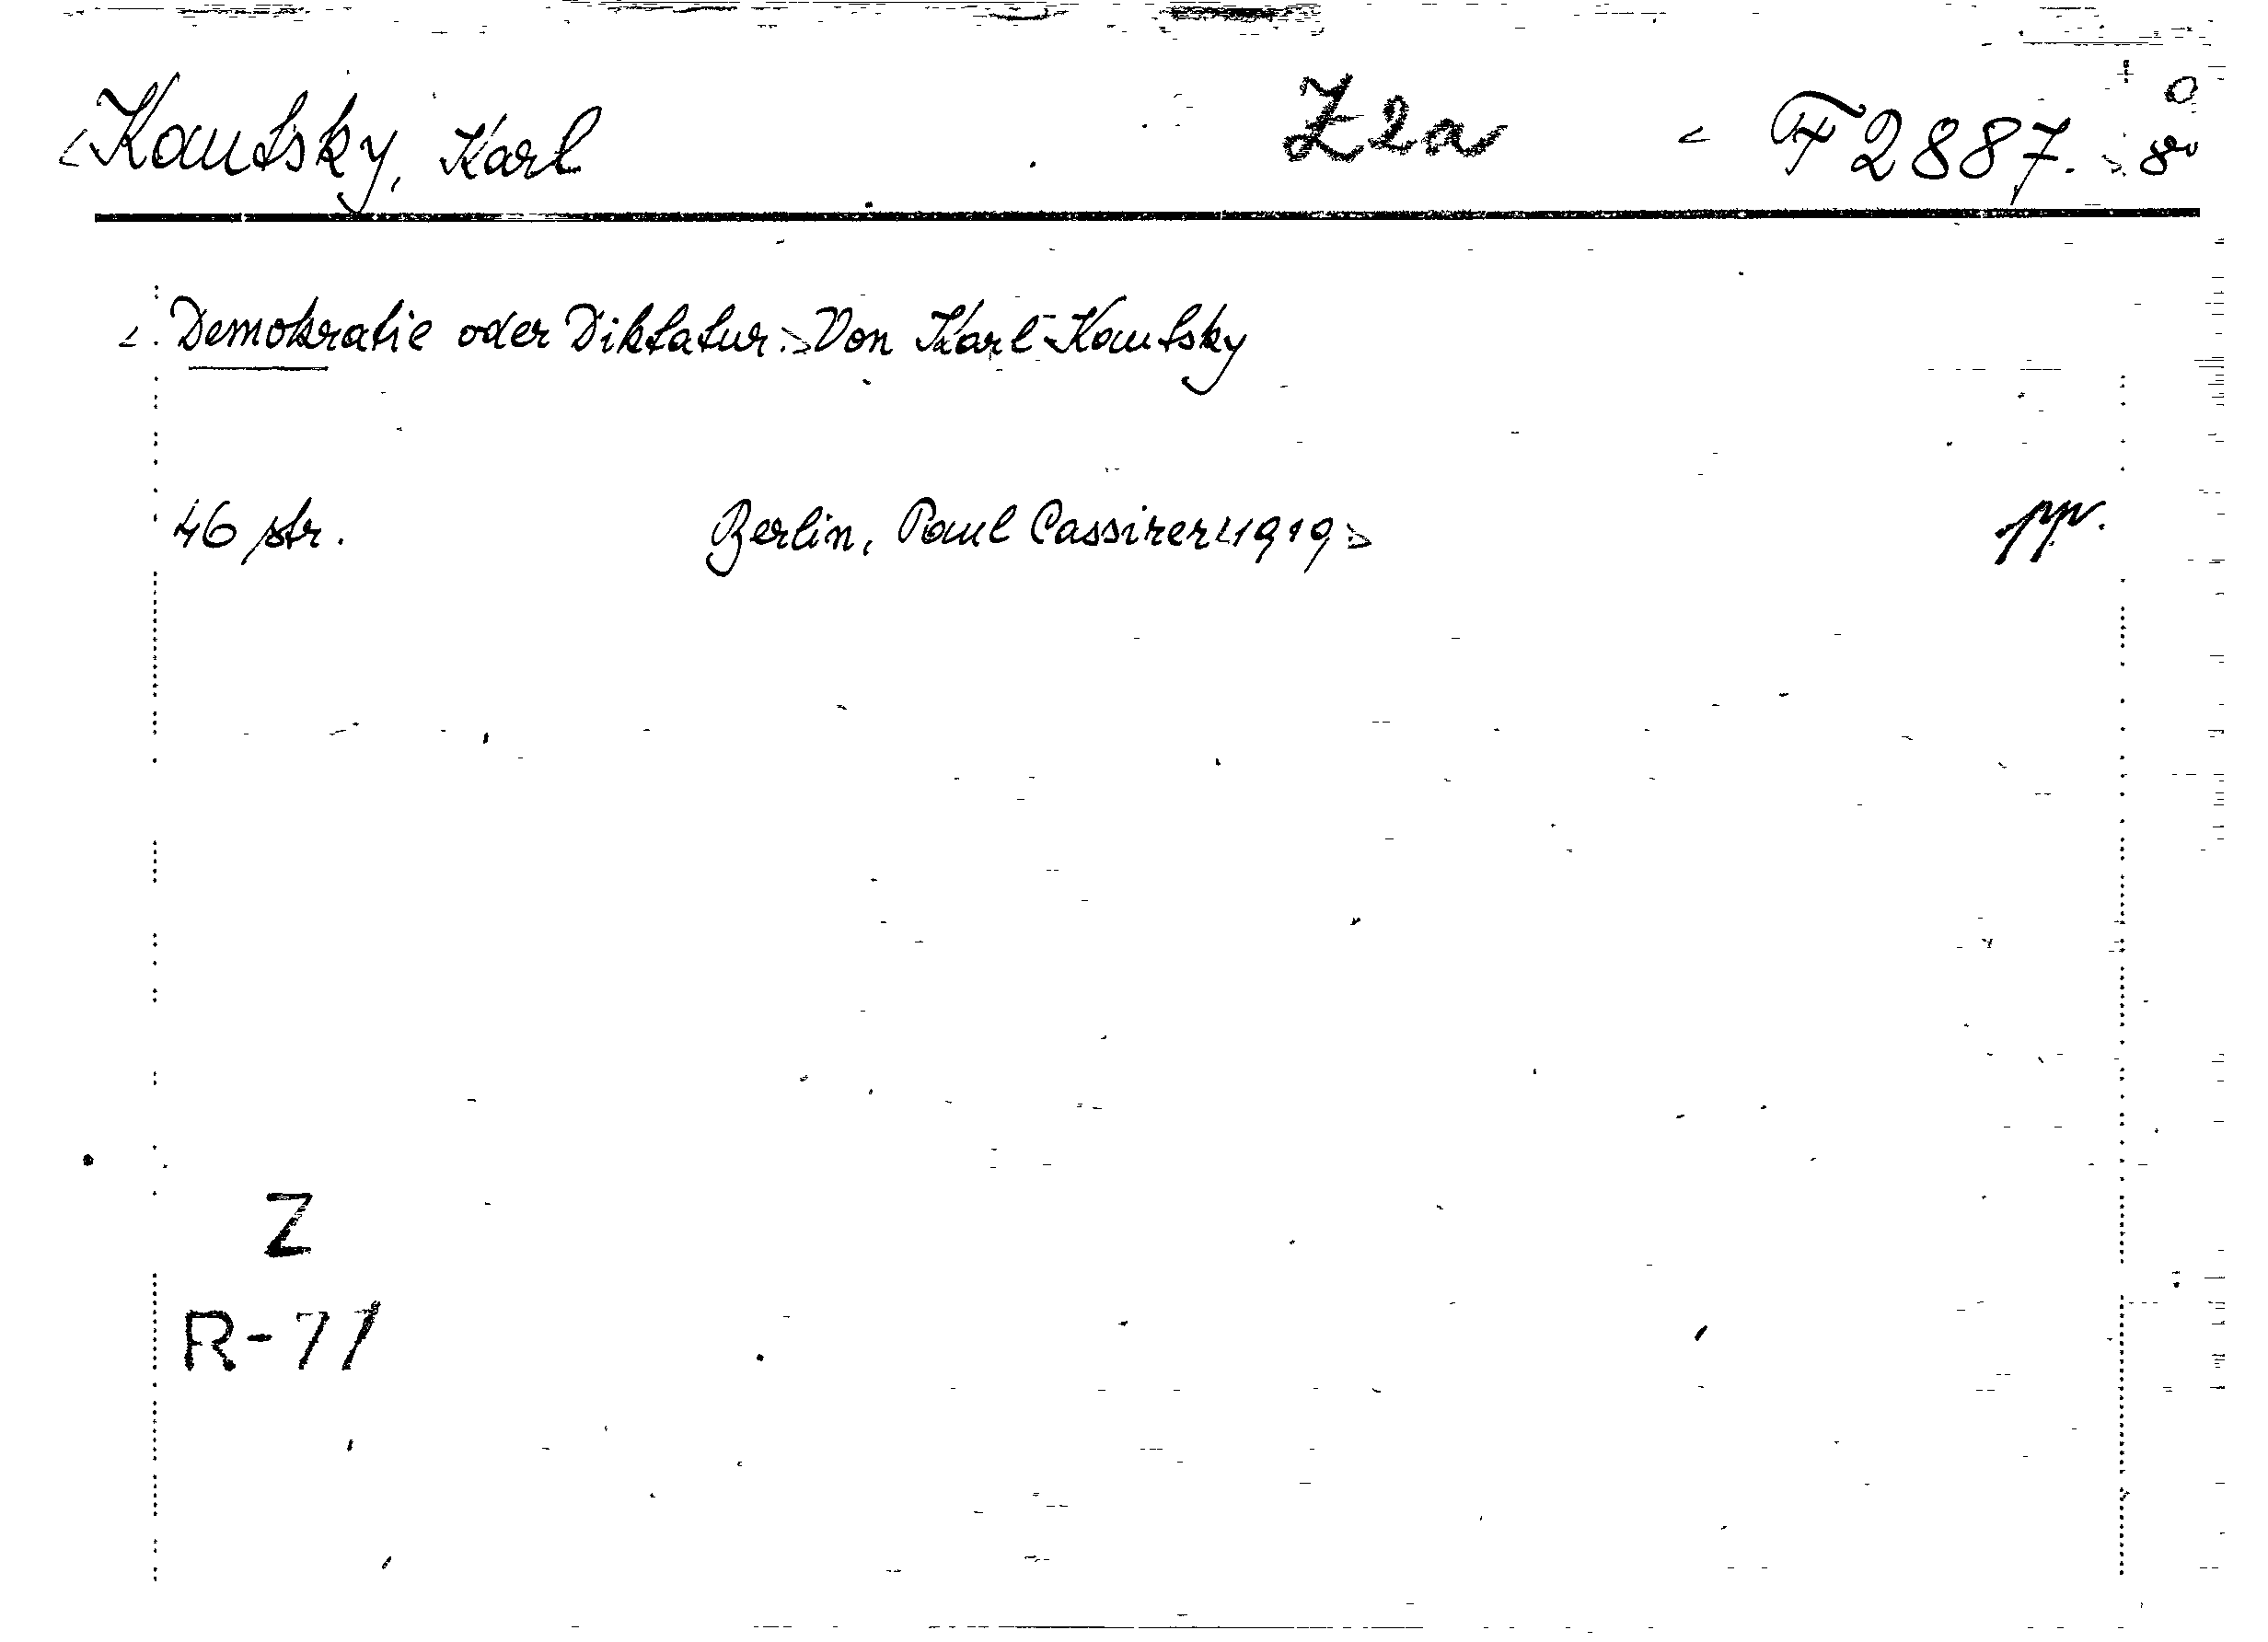 <Kautsky, Karl Z2a <F 2887.> 8º
<Demokratie oder Diktatur.> Von Karl Kautsky
46 str. Berlin, Paul Cassirer <1919> pp.
Z
R-71